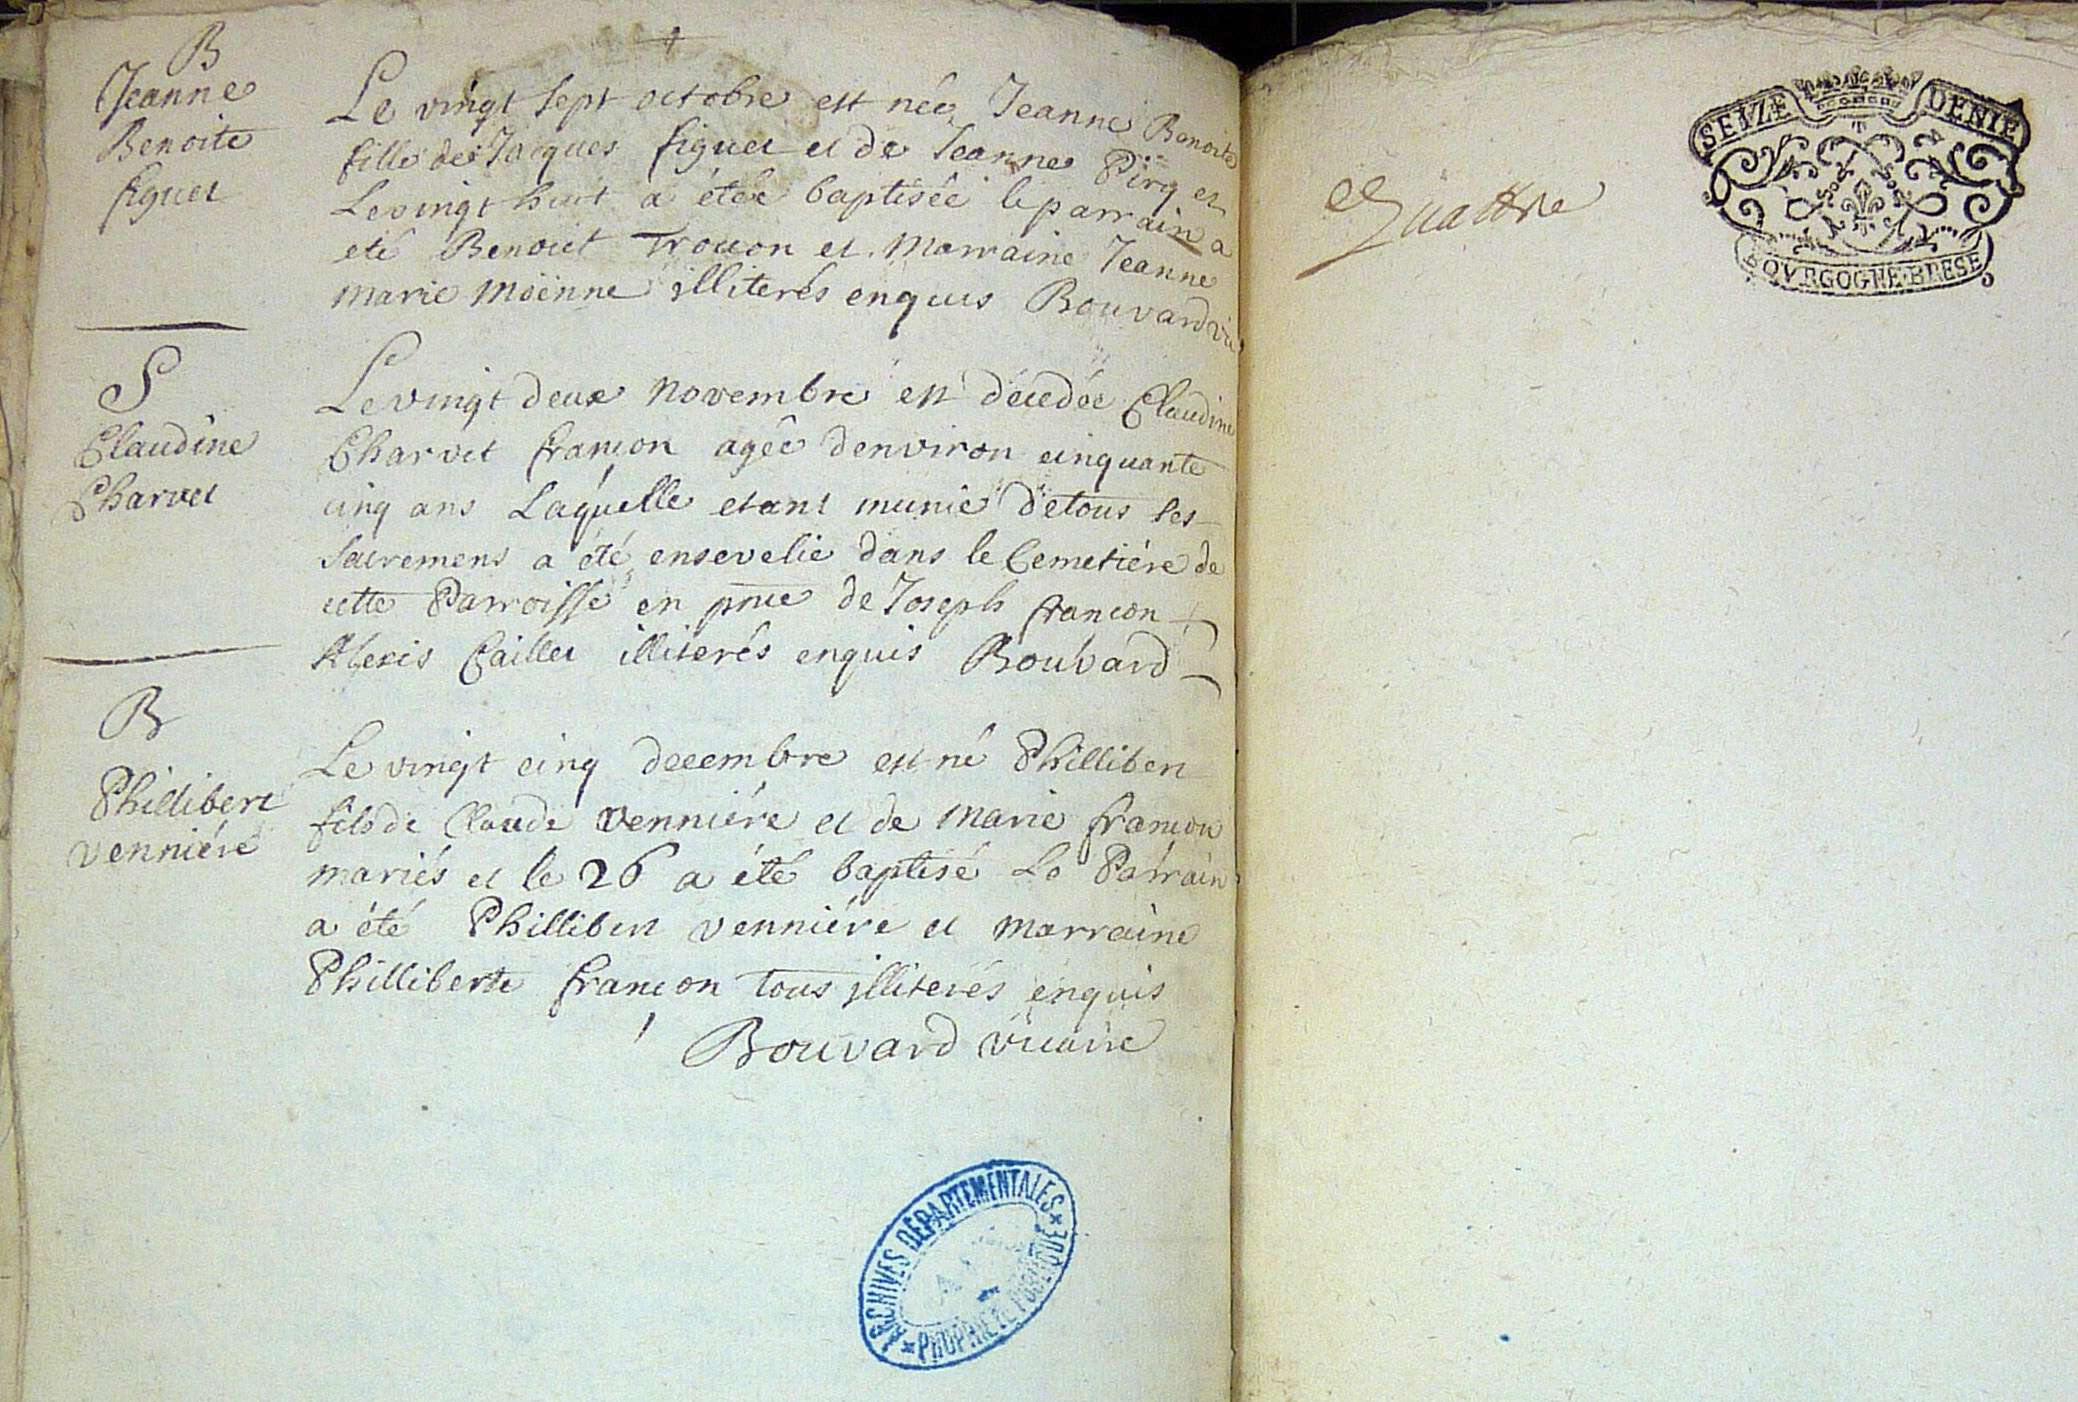 B
Jeanne
Benoite
figuet
Le vingt sept octobre est née Jeanne Benoite
fille de Jacques figuet et de Jeanne Pirq et
Le vingt huit a étée baptisée le parrain a
eté Benoict Trouon et marraine Jeanne
marie moënne illiterés enquis Bouvard vic
S
Claudine
Charvet
Le vingt deux novembre est décédée Claudine
Charvet françon agée denviron cinquante
cinq ans Laquelle etant munie de tous ses
sacremens a été ensevelie dans le Cemetiére de
cette Parroisse en pnce de Joseph françon +
Alexis Caillet illiterés enquis Bouvard
B
Phillibert
venniére
Le vingt cinq decembre est né Phillibert
fils de Claude venniére et de marie françon
mariés et le 26 a été baptisé Le Parrain
a été Phillibert venniére et marraine
Philliberte françon tous illiterés enquis
Bouvard vicaire
ARCHIVES DÉPARTEMENTALES
PROPRIÉTÉ PUBLIQUE
Quattre
SEIZE DENIE
BOVRGOGNE·BRESE